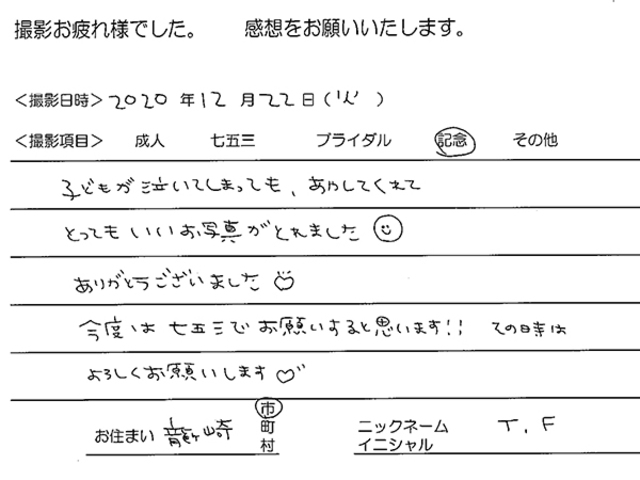 撮影お疲れ様でした。 感想をお願いいたします。
＜撮影日時＞ 2020 年 12 月 22 日 (火)
＜撮影項目＞ 成人 七五三 ブライダル 記念 その他
子どもが泣いてしまっても、あやしてくれて
とってもいいお写真がとれました
ありがとうございました
今度は七五三でお願いすると思います!! その時は
よろしくお願いします
お住まい 龍ヶ崎 市 町 村 ニックネーム イニシャル T, F